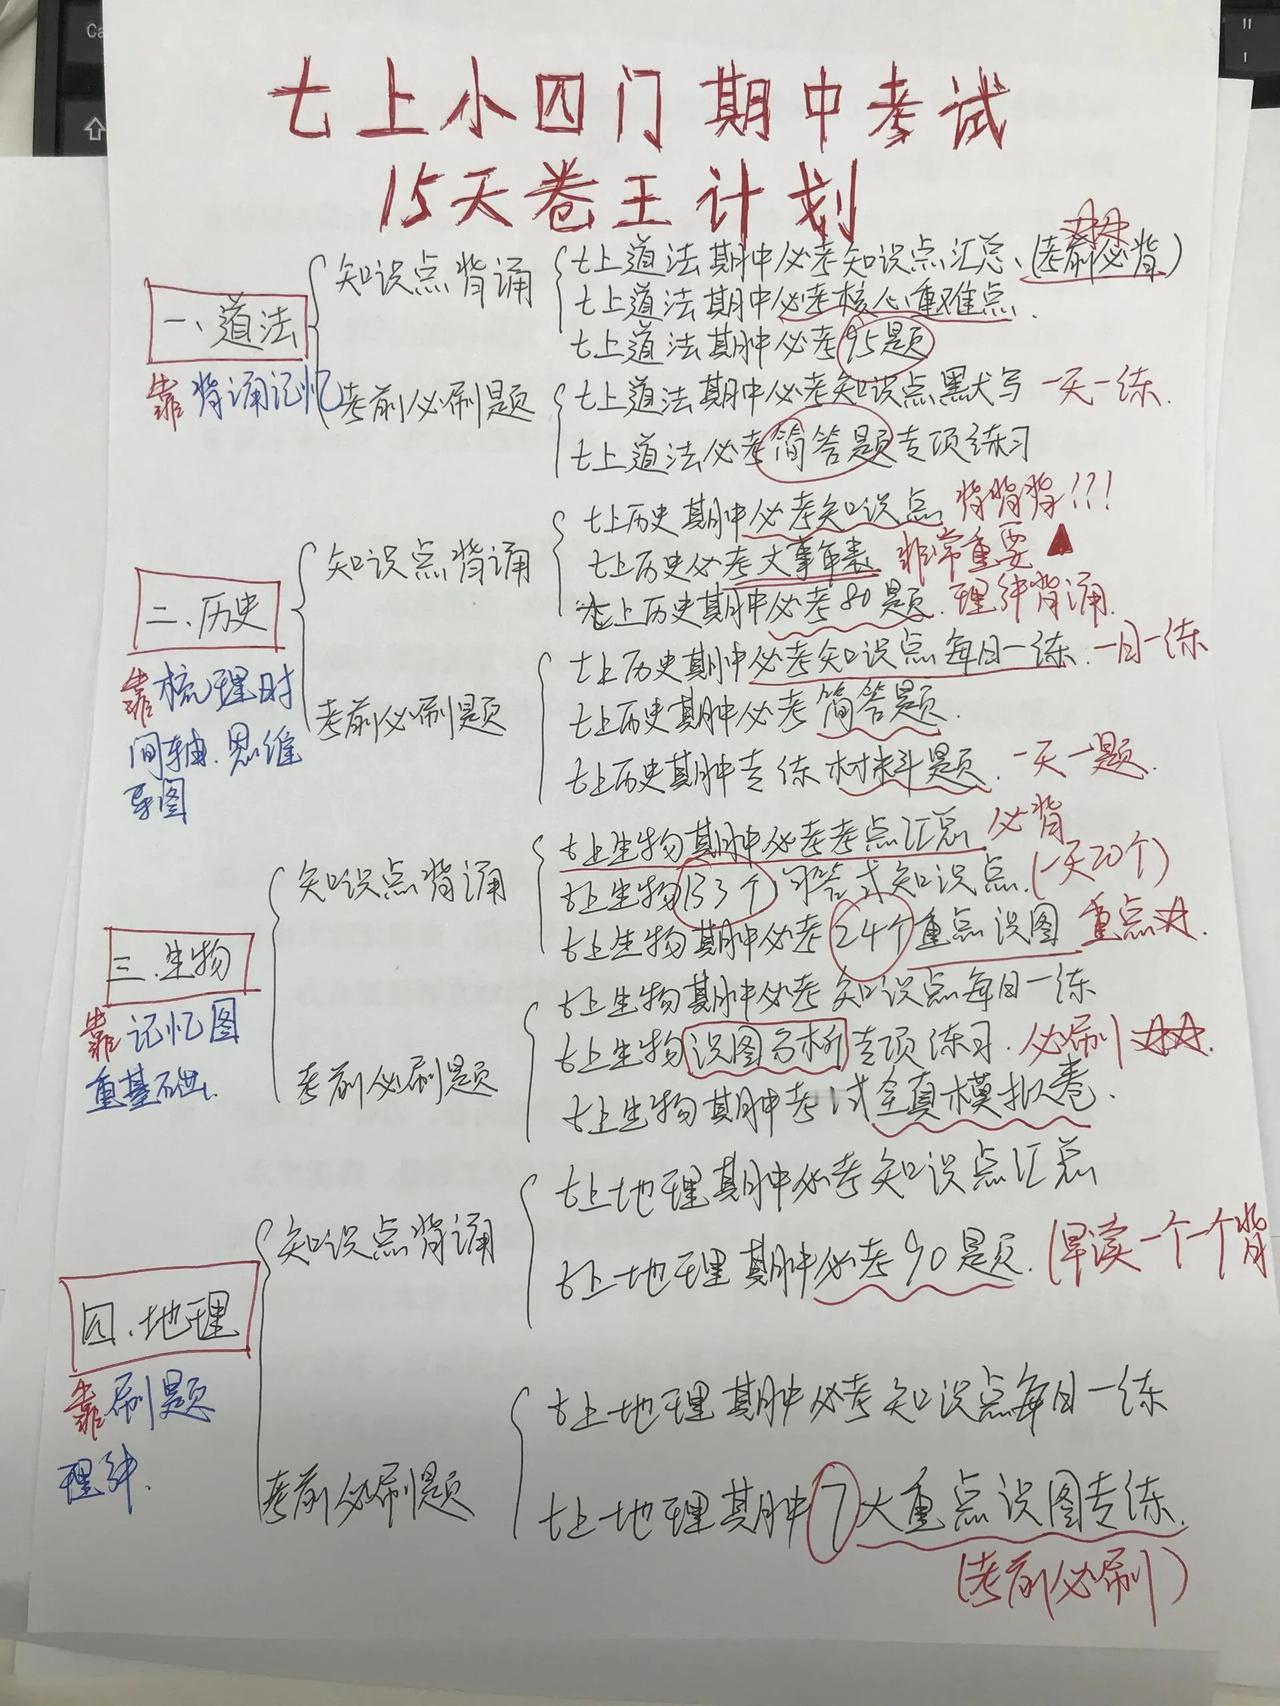 七上小四门期中考试
15天卷王计划
一、道法
靠背诵记忆
知识点背诵
七上道法期中必考知识点汇总、(考前必背)
七上道法期中必考核心重难点.
七上道法期中必考95题
考前必刷题
七上道法期中必考知识点默写 一天一练.
七上道法必考简答题专项练习
二、历史
靠梳理时
间轴.思维
导图
知识点背诵
七上历史期中必考知识点 背背背!!!
七上历史必考大事年表 非常重要
七上历史期中必考80题. 理解背诵.
考前必刷题
七上历史期中必考知识点每日一练. 一日一练
七上历史期中必考简答题.
七上历史期中专练材料题. 一天一题.
三.生物
靠记忆图
重基础.
知识点背诵
七上生物期中必考考点汇总 必背
七上生物153个问答式知识点.(一天20个)
七上生物期中必考24个重点识图 重点☆.
考前必刷题
七上生物期中必考知识点每日一练
七上生物识图名析专项练习. 必刷☆☆.
七上生物期中考试全真模拟卷.
四.地理
靠刷题
理解.
知识点背诵
七上地理期中必考知识点汇总
七上地理期中必考90题.(早读一个一个背
考前必刷题
七上地理期中必考知识点每日一练
七上地理期中7大重点识图专练.
(考前必刷)
Ca